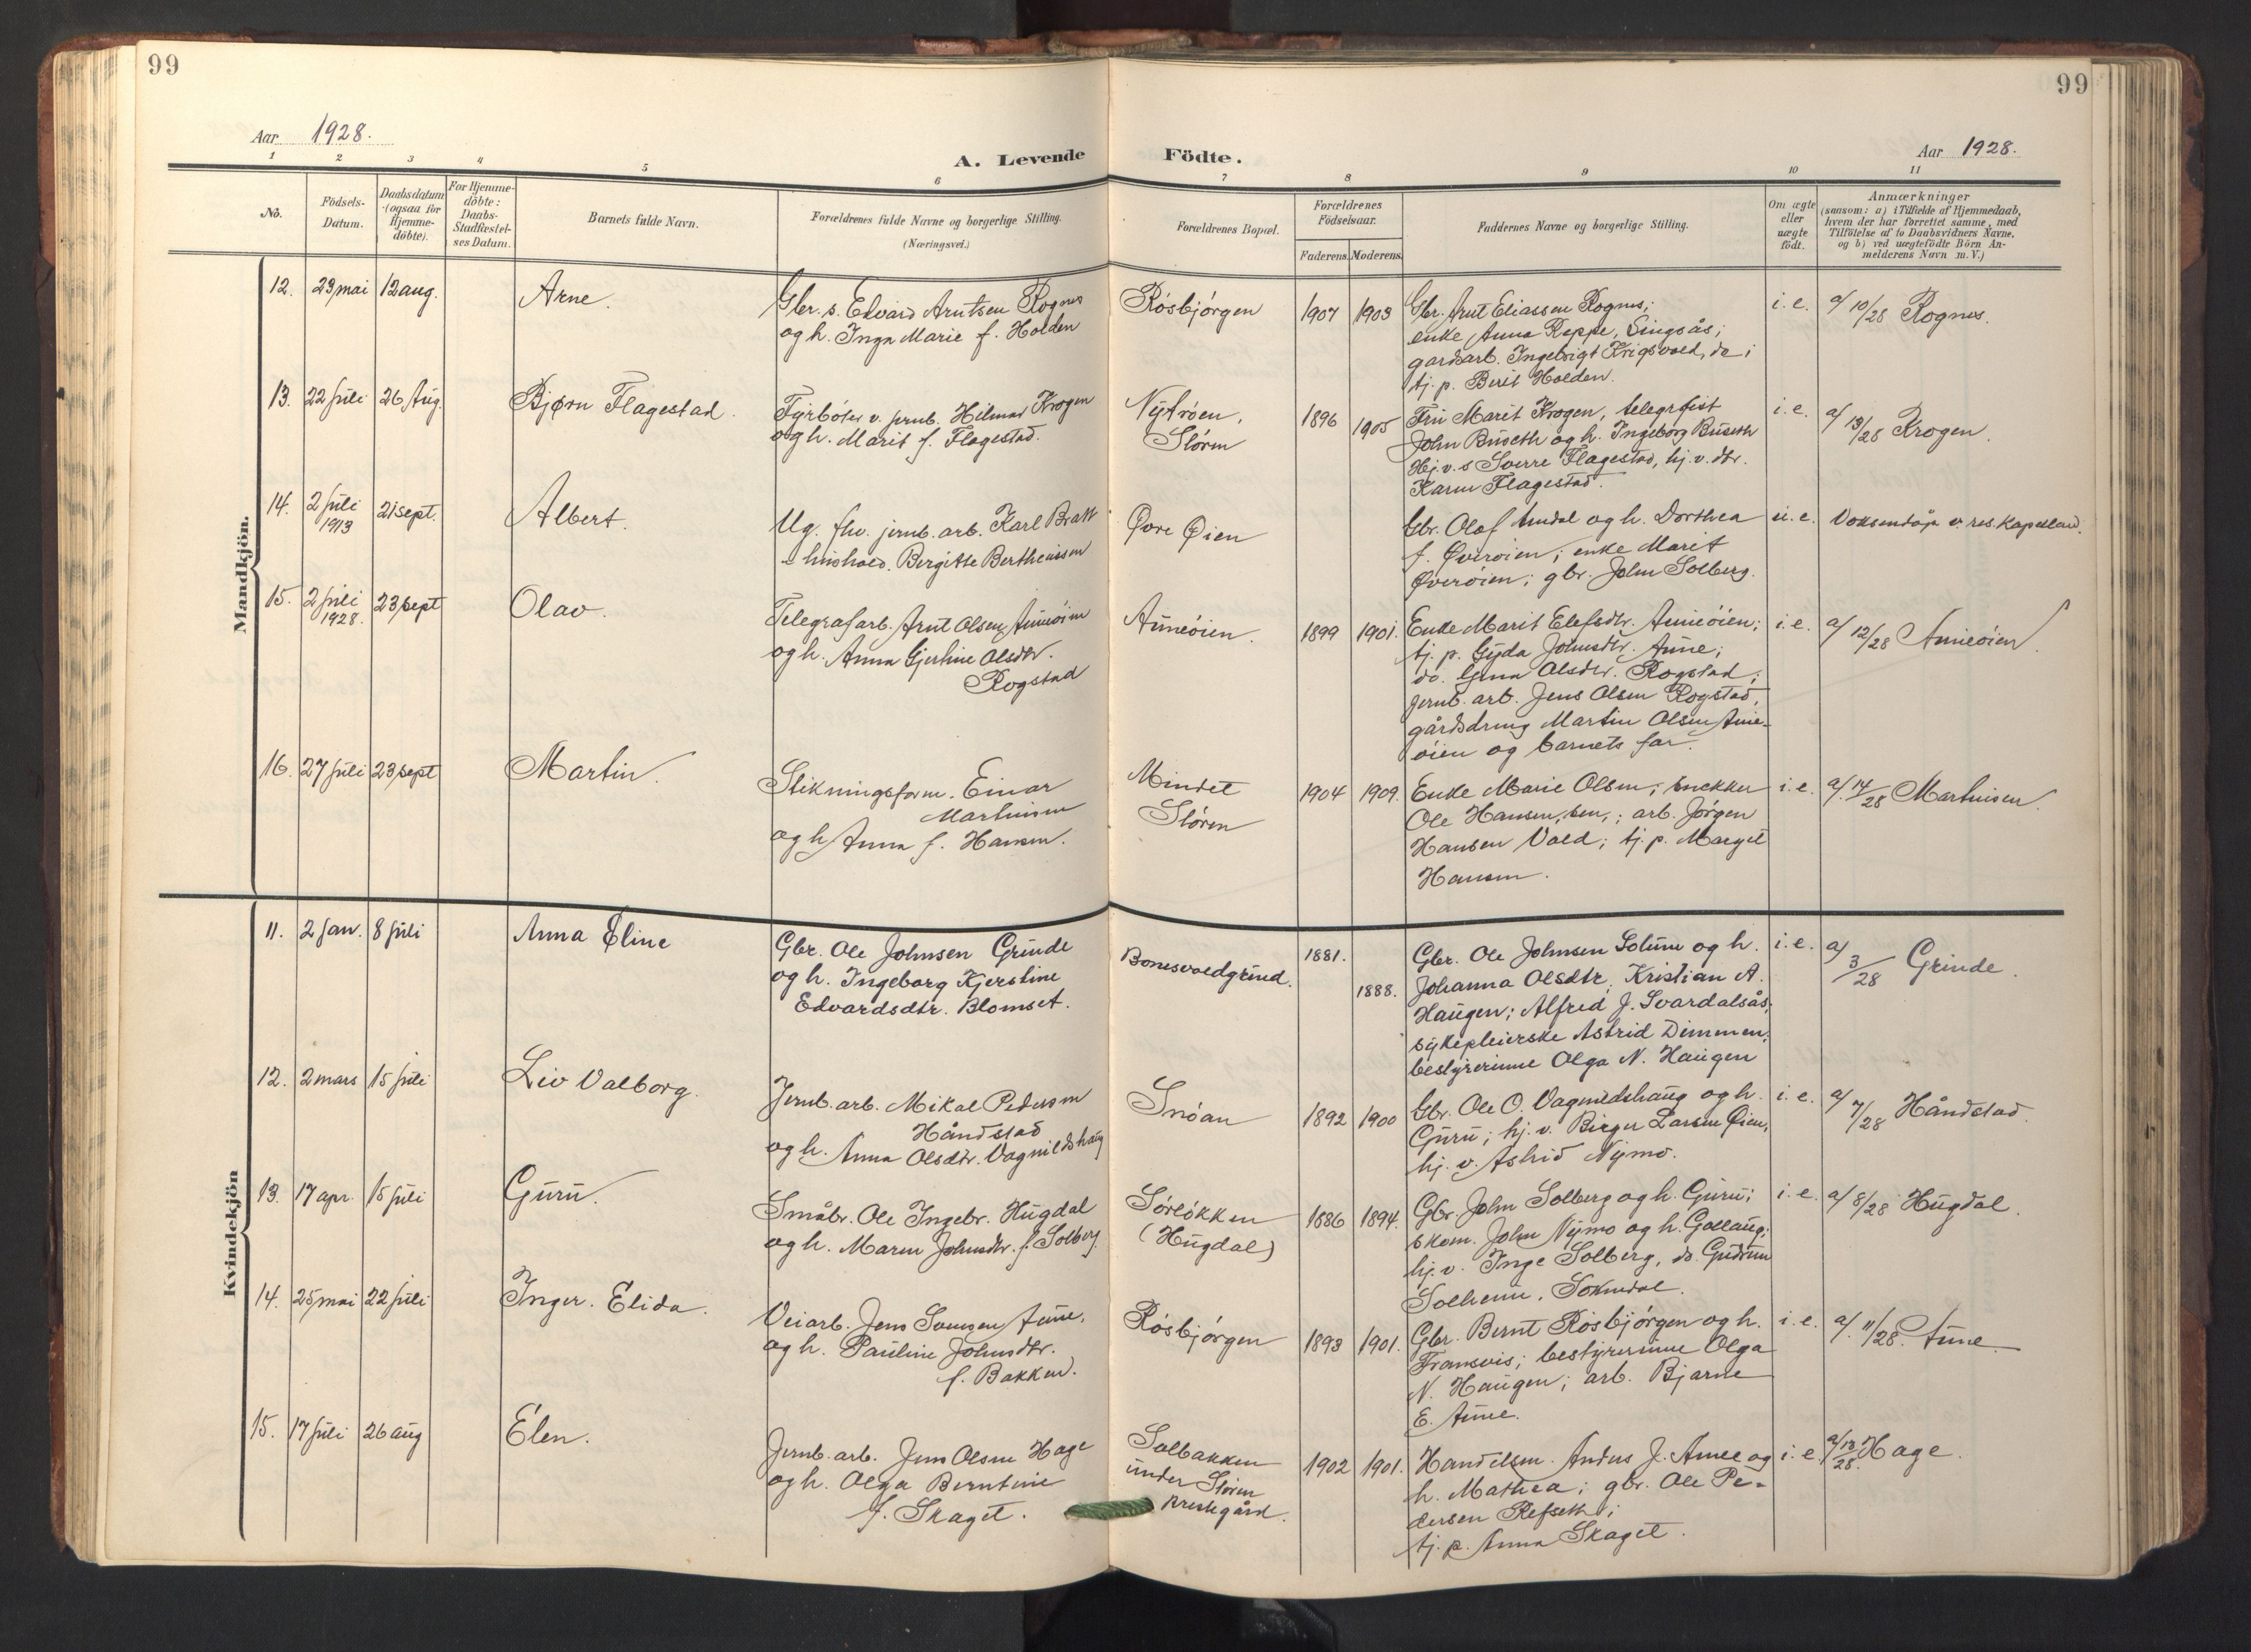 99
99
Aar 1928.
A. Levende Födte.
Aar 1928.
1 2 3 4 5 6 7 8 9 10 11
No.
Födsels-
Datum.
Daabsdatum
(ogsaa for
Hjemme-
döbte).
For Hjemme-
döbte:
Daabs-
Stadfæstel-
ses Datum.
Barnets fulde Navn.
Forældrenes fulde Navne og borgerlige Stilling.
(Næringsvei.)
Forældrenes Bopæl.
Forældrenes
Födselsaar.
Faderens. Moderens.
Faddernes Navne og borgerlige Stilling.
Om ægte
eller
uægte
födt.
Anmærkninger
(saasom: a) i Tilfælde af Hjemmedaab,
hvem der har forrettet samme, med
Tilföielse af to Daabsvidners Navne,
og b) ved uægtefödte Börn An-
melderens Navn m. V.)
Mandkjön.
12. 23 mai 12 aug.
Arne.
Gbr. s. Edvard Arntsen Rognes
og h. Inga Marie f. Holden
Rösbjörgen
1907 1903
Gbr. Arnt Eliassen Rognes;
enke Anna Reppe, Singsås;
gardsarb. Ingebrigt Krigsvold, do;
tj. p. Berit Holden.
i. e.
a/ 10/28 Rognes.
13. 22 juli 26 Aug.
Bjørn Flagestad.
Fyrböter v. jernb. Hilmar Krogen
og h. Marit f. Flagestad.
Nytröen,
Stören
1896 1905
Fru Marit Krogen, telegrafist
John Buseth og h. Ingeborg Buseth
Hj. v. s Sverre Flagestad, hj. v. dtr.
Karen Flagestad.
i. e.
a/ 13/28 Krogen.
14. 2 juli
1913
21 sept.
Albert.
Ug. fhv. jernb. arb. Karl Bratt
Bergitte Bertheussen
Øvre Øien
Gbr. Olof Amdal og h. Dorthea
f. Øveröien; enke Marit
Øveröien; gbr. John Solberg.
u. e.
Voksendåp v. res. kapellan.
15. 2 juli
1928.
23 sept
Olav.
Telegrafarb. Arnt Olsen Auneöien
og h. Anna Gjertine Olsdtr.
Rogstad
Auneöien.
1899 1901.
Enke Marit Elefsdtr. Auneöien;
tj. p. Gyda Johnsdtr. Aune;
do. Gina Olsdtr. Rogstad;
jernb. arb. Jens Olsen Rogstad,
gårdsdreng Martin Olsen Aune-
öien og barnets far.
i. e.
a/ 12/28 Auneöien
16. 27 juli 23 sept
Martin.
Stikningsform. Einar
Martinsen
og h. Anna f. Hansen.
Mindet
Stören
1904 1909.
Enke Marie Olsen; snekker
Ole Hansen, sen.; arb. Jörgen
Hansen Vold; tj. p. Margit
Hansen.
i. e.
a/. 14/28 Martinsen.
Kvindekjön
11. 2 jan. 8 juli
Anna Eline
Gbr. Ole Johnsen Grinde
og h. Ingeborg Kjerstine
Edvardsdtr. Blomset.
Bonesvoldgrind.
1881.
1888.
Gbr. Ole Johnsen Solum og h.
Johanna Olsdtr, Kristian A.
Haugen; Alfred J. Svardalsås;
sykepleierske Astrid Dimmen;
bestyrerinne Olga N. Haugen
i. e.
a/ 3/28 Grinde.
12. 2 mars 15 juli
Liv Valborg.
Jernb. arb. Mikal Pedersen
Håndstad
og h. Anna Olsdtr. Vagnildshaug
Snöan
1892 1900
Gbr. Ole O. Vagnildshaug og h.
Guru; hj. v. Birger Larsen Øien,
hj. v. Astrid Nymo.
i. e.
a/ 7/28 Håndstad
13. 17 apr. 15 juli
Guru.
Småbr. Ole Ingebr. Hugdal
og h. Maren Johnsdtr. f. Solberg.
Sörlökken
(Hugdal)
1886 1894.
Gbr. John Solberg og h. Guru;
skom. John Nymo og h. Gollaug;
hj. v. Inge Solberg, do. Gudrun
Solheim, Soknedal.
i. e.
a/ 8/28 Hugdal.
14. 25 mai 22 juli
Inger. Elida.
Veiarb. Jens Aune,
og h. Pauline Johnsdtr.
f. Bakken.
Rösbjörgen
1893 1901.
Gbr. Bernt Rösbjörgen og h.
Fransvis; bestyrerinne Olga
N. Haugen; arb. Bjarne
E. Aune.
i. e.
a/. 11/28. Aune
15. 17 juli 26 aug
Elen.
Jernb. arb. Jens Olsen Hage
og h. Olga Berntine
f. Skaget.
Solbakken
under Stören
Prestegård.
1902 1901.
Handelsm. Anders J. Aune og
h. Mathea; gbr. Ole Pe-
dersen Refseth;
tj. p. Anna Skaget.
i. e.
a/ 13/28. Hage.